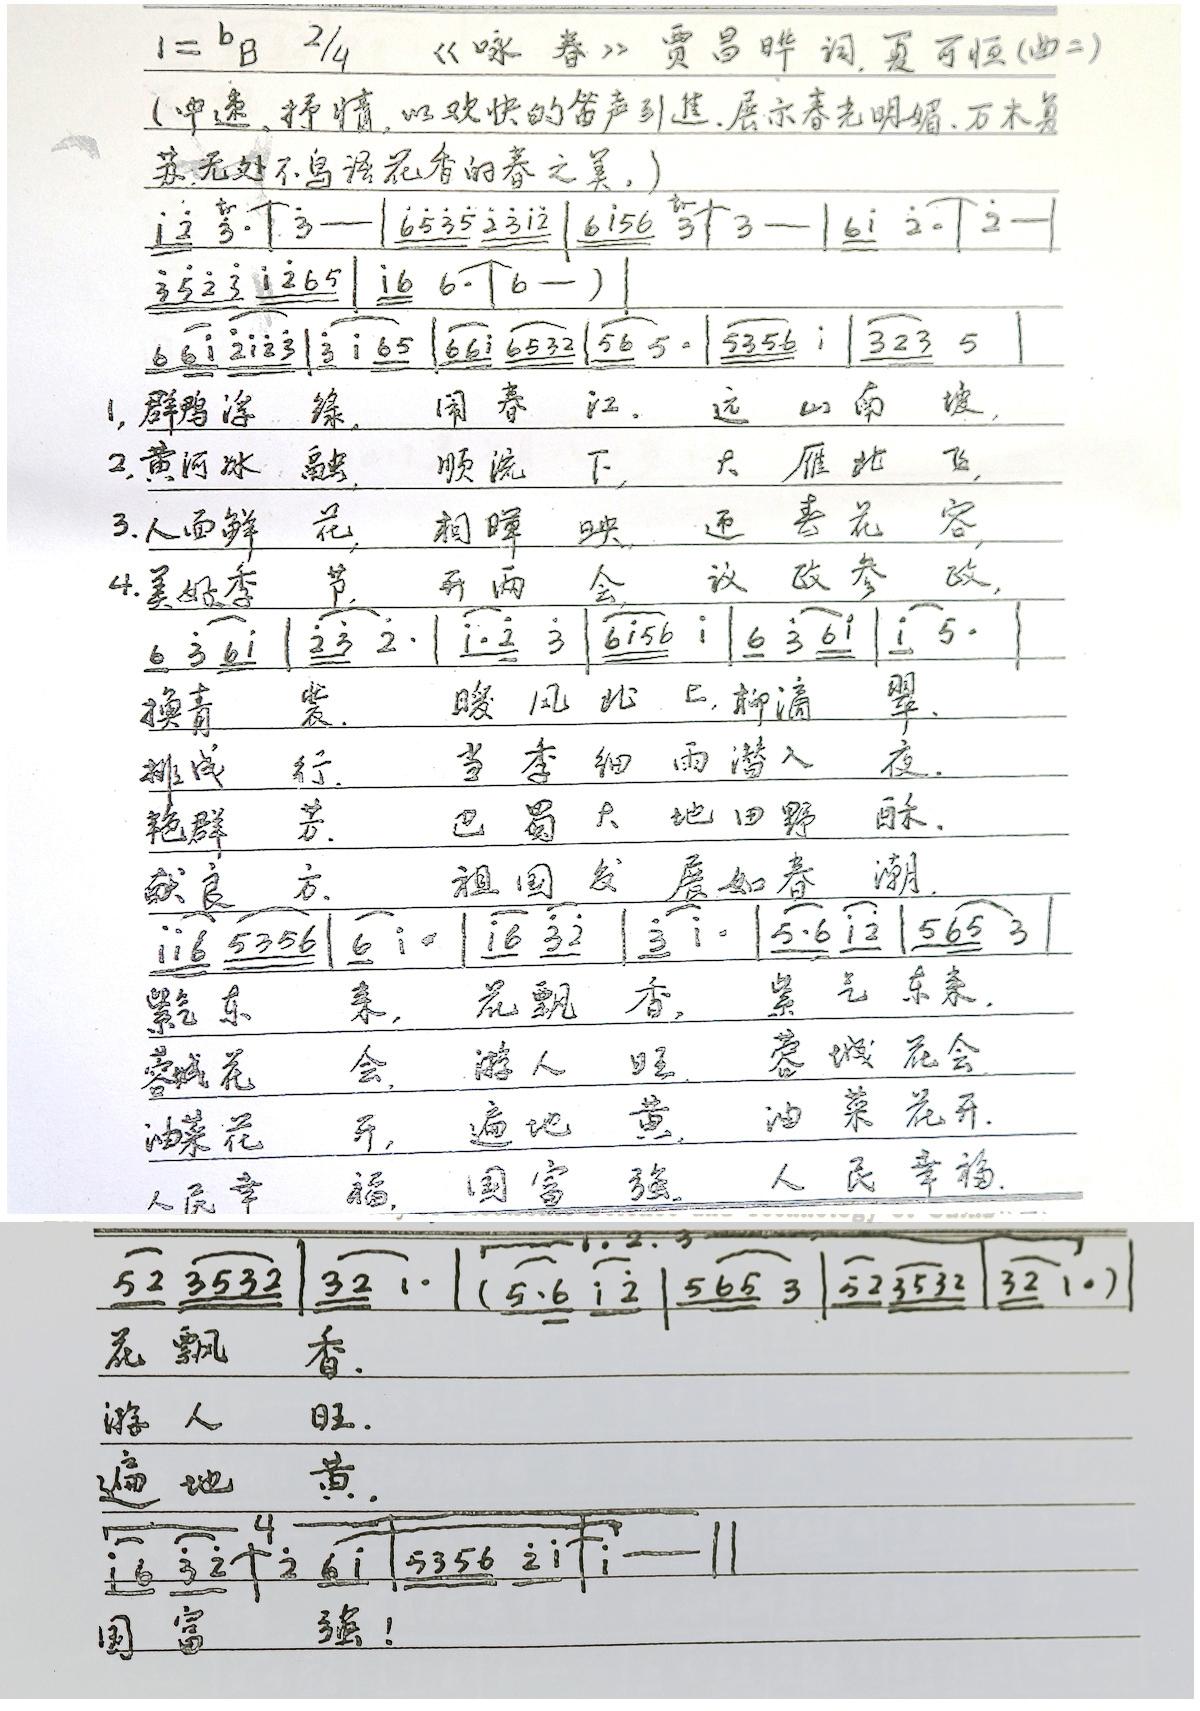 1=ᵇB 2/4 《咏春》 贾昌晔词 夏可恒(曲二)
(中速、抒情,以欢快的笛声引进.展示春光明媚.万木复
苏,无处不鸟语花香的春之美.)
i 2̇ tr 3̇· | 3̇ — | 6535 2̇3̇i2̇ | 6i56 tr 3̇ | 3 — | 6i 2̇· | 2̇ — |
3̇5̇2̇3̇ i2̇65 | i6 6· | 6 — ) |
6 6i 2̇i2̇3̇ | 3̇ i 65 | 66i 6532 | 56 5· | 5356 i | 323 5 |
1, 群鸭浮 绿, 闹春 江. 远 山南 坡,
2, 黄河冰 融, 顺流 下, 大 雁北 飞,
3. 人面鲜 花, 相暉 映, 迎 春花 容,
4. 美好季 节, 开两 会, 议 政参 政,
6 3̇ 6i | 2̇3̇ 2̇· | i·2̇ 3̇ | 6i56 i | 6 3̇ 6i | i 5· |
换青 裳. 暖风北上,柳滴 翠.
排成 行. 当季细雨潜入 夜.
艳群 芳. 巴蜀大地田野 酥.
献良 方. 祖国发展如春 潮.
ii6 5356 | 6 i· | i6 3̇2̇ | 3̇ i· | 5·6 i2̇ | 565 3 |
紫气东 来, 花飘 香, 紫气东来,
蓉城花 会, 游人 旺, 蓉城花会
油菜花 开, 遍地 黄, 油菜花开.
人民幸 福, 国富 强, 人民幸福.
52 3532 | 32 1· | 1.2.3 (5·6 i2̇ | 565 3 | 52 3532 | 32 1·) |
花飘 香.
游人 旺.
遍地 黄.
4 i6 3̇2̇ | 2̇ 6i | 5356 2̇i | i — ||
国富 强!